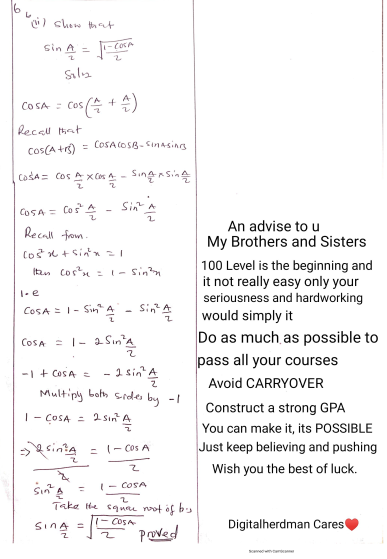 6
b
(ii) Show that
sin A/2 = √(1-cosA/2)
Soln
COSA = COS(A/2 + A/2)
Recall that
COS(A+B) = COSACOSB - SinASinB
COSA = COS A/2 × COS A/2 - Sin A/2 × Sin A/2
COSA = COS² A/2 - Sin² A/2
Recall from.
COS²x + Sin²x = 1
then COS²x = 1 - Sin²x
i.e
COSA = 1 - Sin² A/2 - Sin² A/2
COSA = 1 - 2Sin² A/2
-1 + COSA = -2Sin² A/2
Multiply both sides by -1
1 - COSA = 2Sin² A/2
⇒ 2Sin² A/2 / 2 = 1-COSA/2
Sin² A/2 = 1-COSA/2
Take the square root of b.s
Sin A/2 = √(1-COSA/2) proved
An advise to u
My Brothers and Sisters
100 Level is the beginning and
it not really easy only your
seriousness and hardworking
would simply it
Do as much as possible to
pass all your courses
Avoid CARRYOVER
Construct a strong GPA
You can make it, its POSSIBLE
Just keep believing and pushing
Wish you the best of luck.
Digitalherdman Cares❤️
Scanned with CamScanner